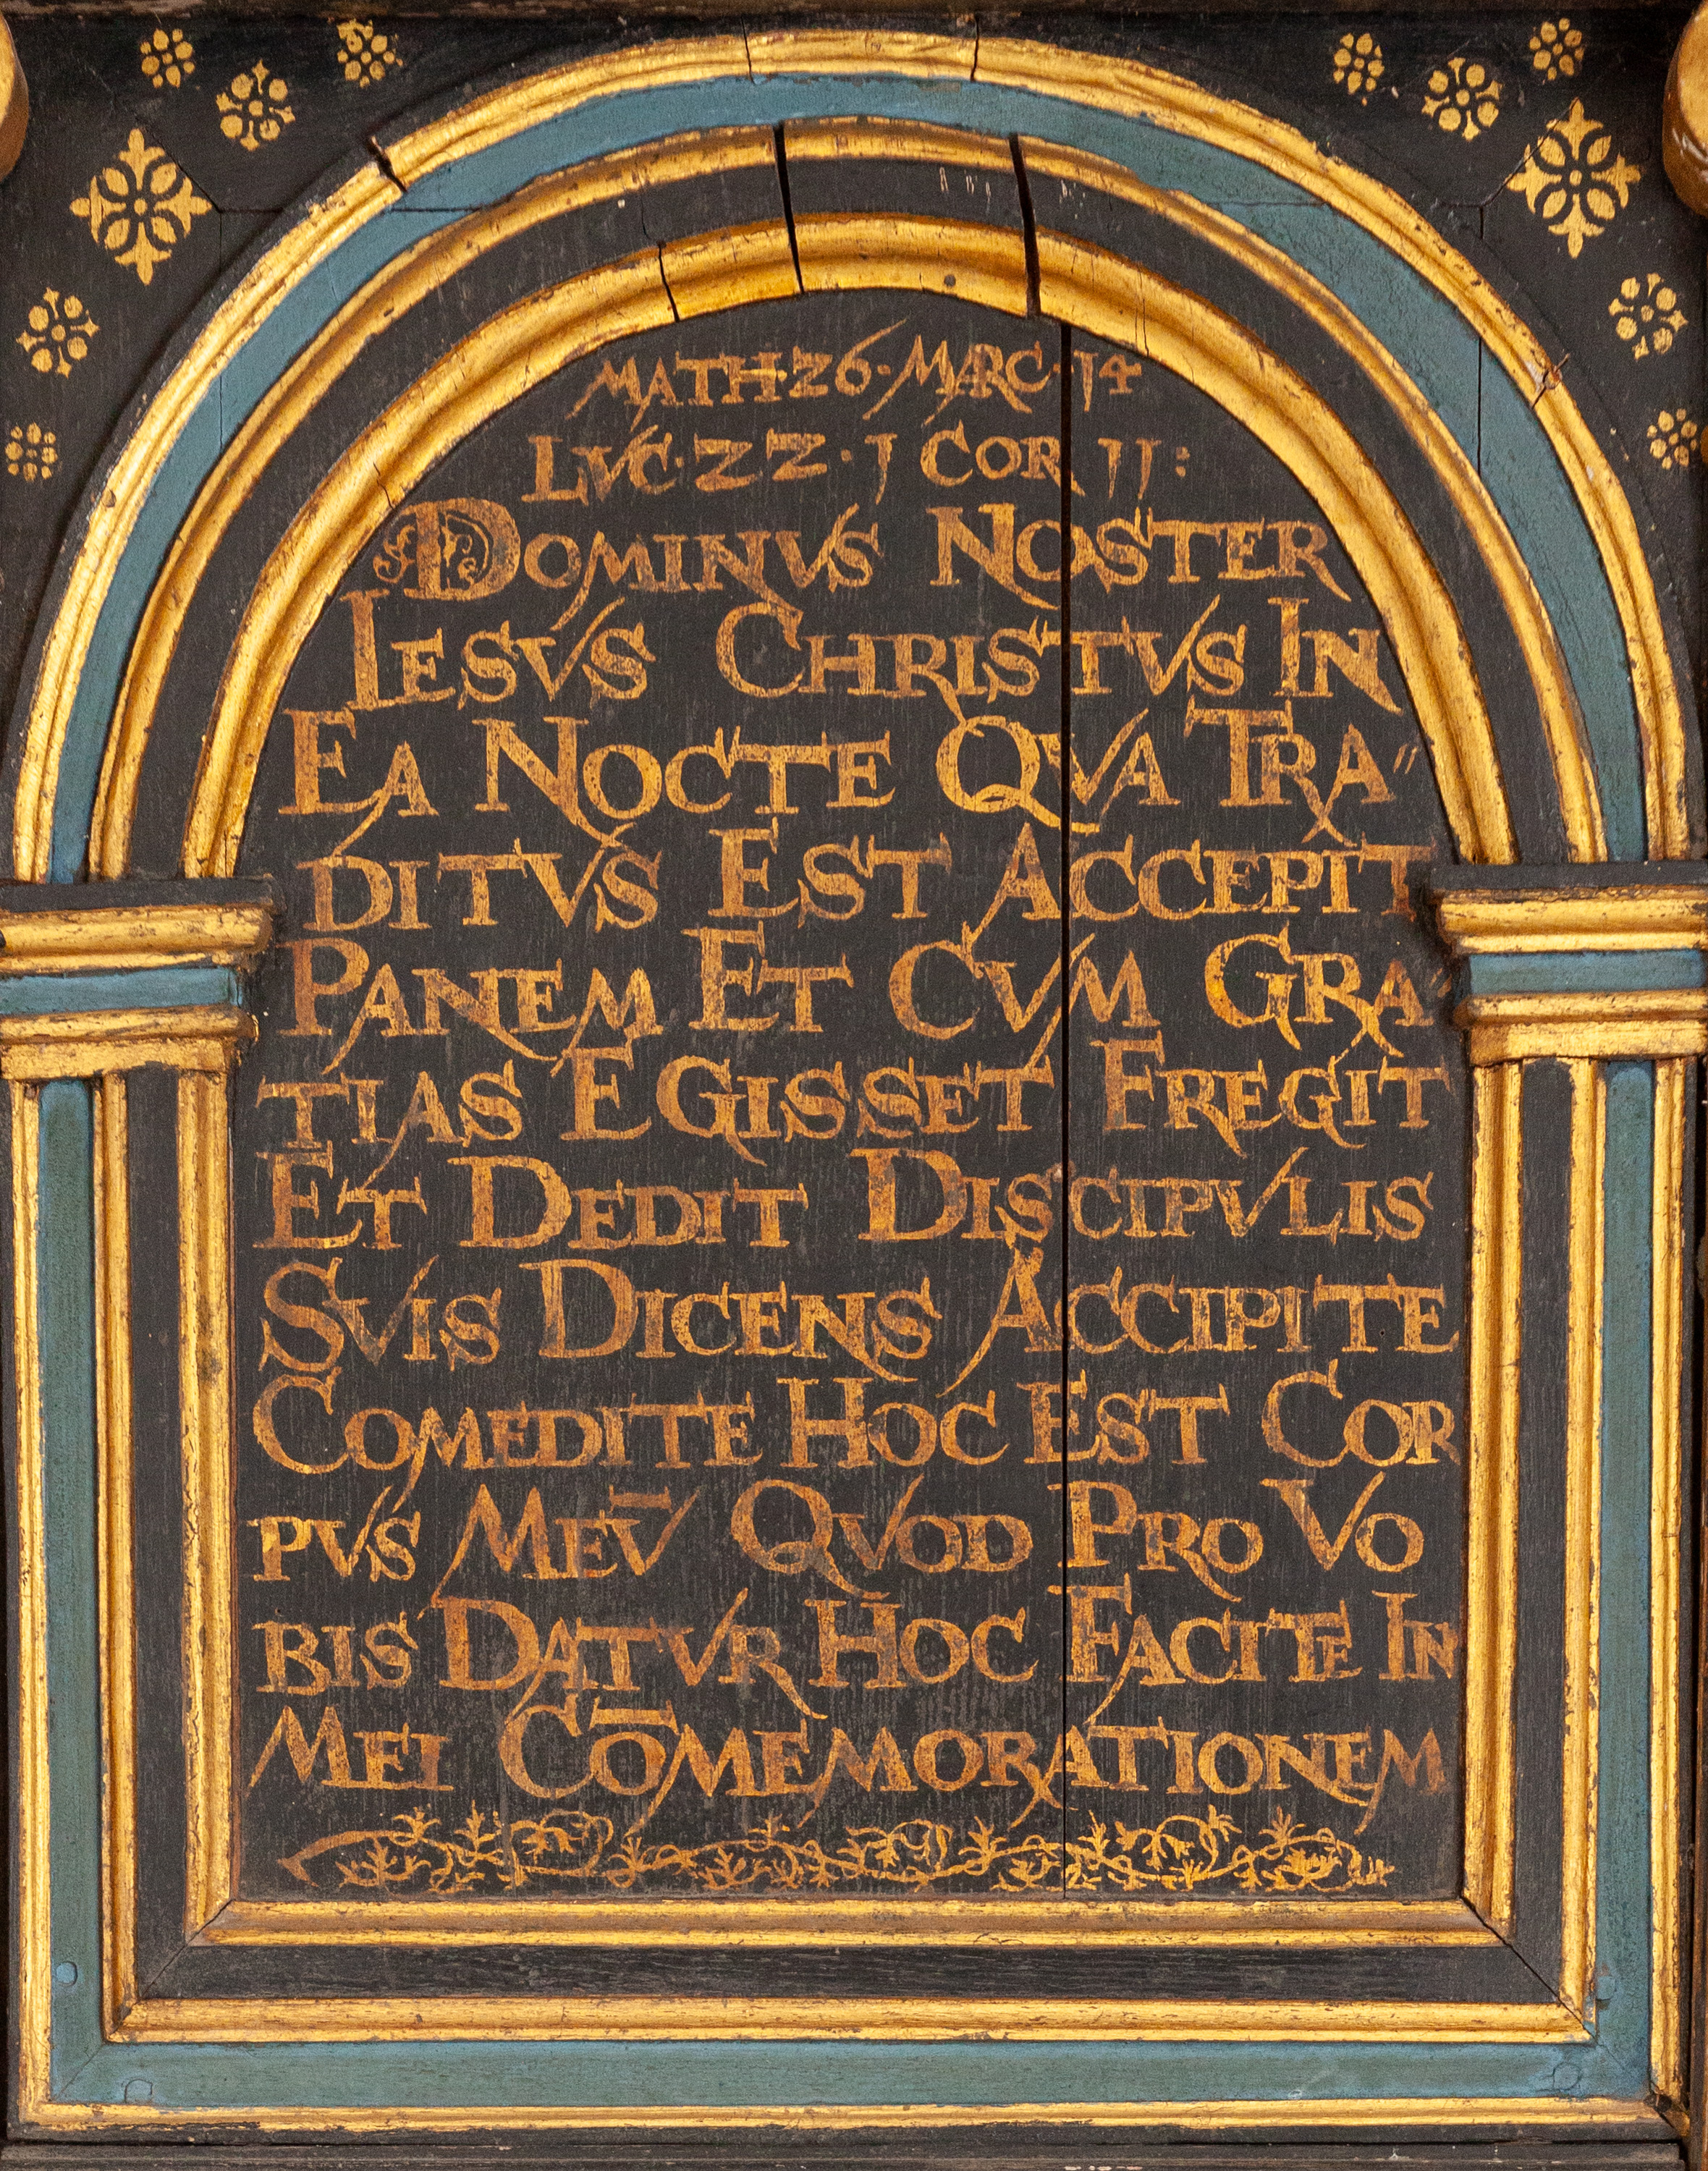 MATH·26·MARC·14
LVC·22·1 COR 11:
DOMINVS NOSTER
IESVS CHRISTVS IN
EA NOCTE QVA TRA"
DITVS EST ACCEPIT
PANEM ET CVM GRA
TIAS EGISSET FREGIT
ET DEDIT DISCIPVLIS
SVIS DICENS ACCIPITE
COMEDITE HOC EST COR
PVS MEV̄ QVOD PRO VO
BIS DATVR HOC FACITE IN
MEI CŌMEMORATIONEM